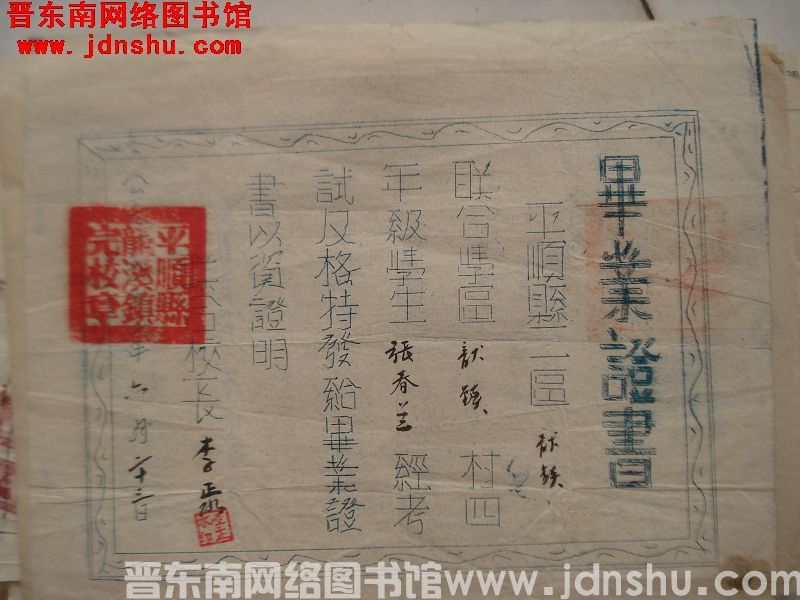 晋东南网络图书馆
www.jdnshu.com
畢業證書
平順縣二區
联合學區
村四
年級學生張春兰經考
試及格特發給畢業證
書以資證明
校长李
年六月二十三日
平順縣
龍溪鎮
完校章
晋东南网络图书馆www.jdnshu.com